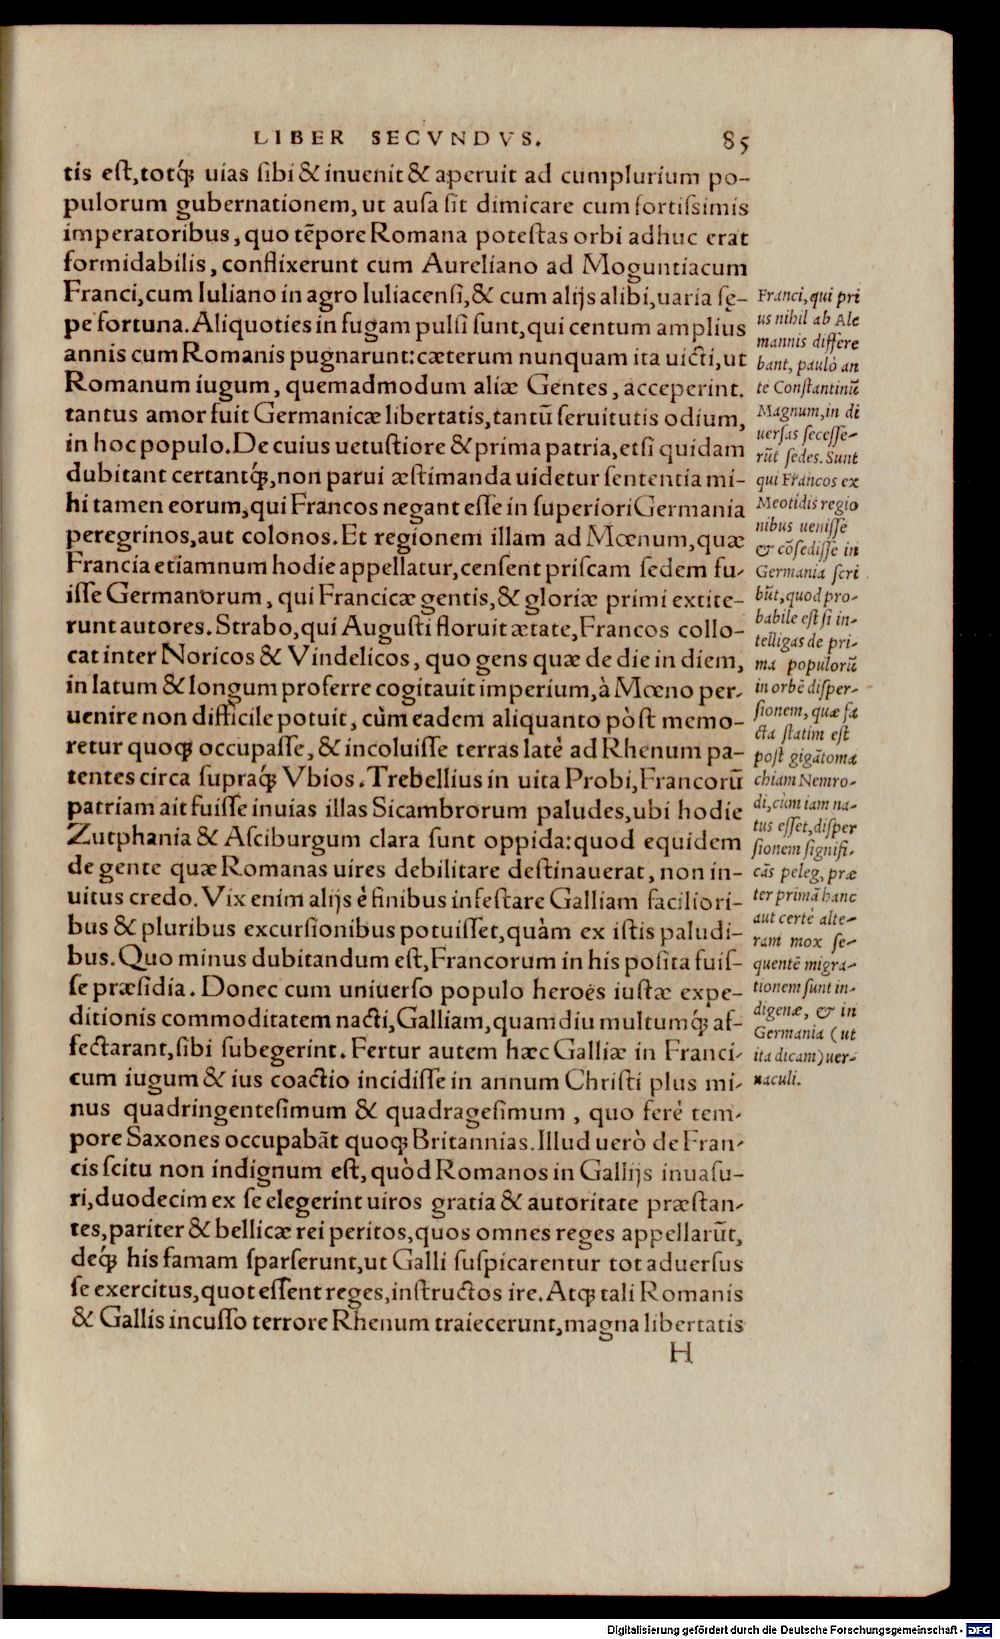 LIBER SECVNDVS. 85
tis eſt, totq́ꝫ uias ſibi & inuenit & aperuit ad cumplurium po-
pulorum gubernationem, ut auſa ſit dimicare cum fortiſsimis
imperatoribus, quo tẽpore Romana poteſtas orbi adhuc erat
formidabilis, conflixerunt cum Aureliano ad Moguntiacum
Franci, cum Iuliano in agro Iuliacenſi, & cum alijs alibi, uaria ſę-
pe fortuna. Aliquoties in fugam pulſi ſunt, qui centum amplius
annis cum Romanis pugnarunt: cæterum nunquam ita uicti, ut
Romanum iugum, quemadmodum aliæ Gentes, acceperint.
tantus amor fuit Germanicæ libertatis, tantũ ſeruitutis odium,
in hoc populo. De cuius uetuſtiore & prima patria, etſi quidam
dubitant certantq́ꝫ, non parui æſtimanda uidetur ſententia mi-
hi tamen eorum, qui Francos negant eſſe in ſuperiori Germania
peregrinos, aut colonos. Et regionem illam ad Mœnum, quæ
Francia etiamnum hodie appellatur, cenſent priſcam ſedem fu-
iſſe Germanorum, qui Francicæ gentis, & gloriæ primi extite-
runt autores. Strabo, qui Auguſti floruit ætate, Francos collo-
cat inter Noricos & Vindelicos, quo gens quæ de die in diem,
in latum & longum proferre cogitauit imperium, à Mœno per-
uenire non difficile potuit, cùm eadem aliquanto pòſt memo-
retur quoqꝫ occupaſſe, & incoluiſſe terras latè ad Rhenum pa-
tentes circa ſupraq́ꝫ Vbios. Trebellius in uita Probi, Francorũ
patriam ait fuiſſe inuias illas Sicambrorum paludes, ubi hodie
Zutphania & Aſciburgum clara ſunt oppida: quod equidem
de gente quæ Romanas uires debilitare deſtinauerat, non in-
uitus credo. Vix enim alijs è finibus infeſtare Galliam faciliori-
bus & pluribus excurſionibus potuiſſet, quàm ex iſtis paludi-
bus. Quo minus dubitandum eſt, Francorum in his poſita fuiſ-
ſe præſidia. Donec cum uniuerſo populo heroës iuſtæ expe-
ditionis commoditatem nacti, Galliam, quamdiu multumq́ꝫ af-
fectarant, ſibi ſubegerint. Fertur autem hæc Galliæ in Franci-
cum iugum & ius coactio incidiſſe in annum Chriſti plus mi-
nus quadringenteſimum & quadrageſimum, quo ferè tem-
pore Saxones occupabãt quoqꝫ Britannias. Illud uerò de Fran-
cis ſcitu non indignum eſt, quòd Romanos in Gallijs inuaſu-
ri, duodecim ex ſe elegerint uiros gratia & autoritate præſtan-
tes, pariter & bellicæ rei peritos, quos omnes reges appellarũt,
deq́ꝫ his famam ſparſerunt, ut Galli ſuſpicarentur tot aduerſus
ſe exercitus, quot eſſent reges, inſtructos ire. Atqꝫ tali Romanis
& Gallis incuſſo terrore Rhenum traiecerunt, magna libertatis
H
Franci, qui pri
us nihil ab Ale
mannis differe
bant, paulò an
te Conſtantinũ
Magnum, in di
uerſas ſeceſſe-
rũt ſedes. Sunt
qui Francos ex
Meotidis regio
nibus ueniſſe
& cõſediſſe in
Germania ſcri
bũt, quod pro-
babile eſt ſi in-
telligas de pri-
ma populorũ
in orbẽ diſper-
ſionem, quæ fa
cta ſtatim eſt
poſt gigãtoma
chiam Nemro-
di, cùm iam na-
tus eſſet, diſper
ſionem ſignifi-
cãs peleg, præ
ter primã hanc
aut certè alte-
ram mox ſe-
quentẽ migra-
tionem ſunt in-
digenæ, & in
Germania (ut
ita dicam) uer-
naculi.
Digitalisierung gefördert durch die Deutsche Forschungsgemeinschaft - DFG